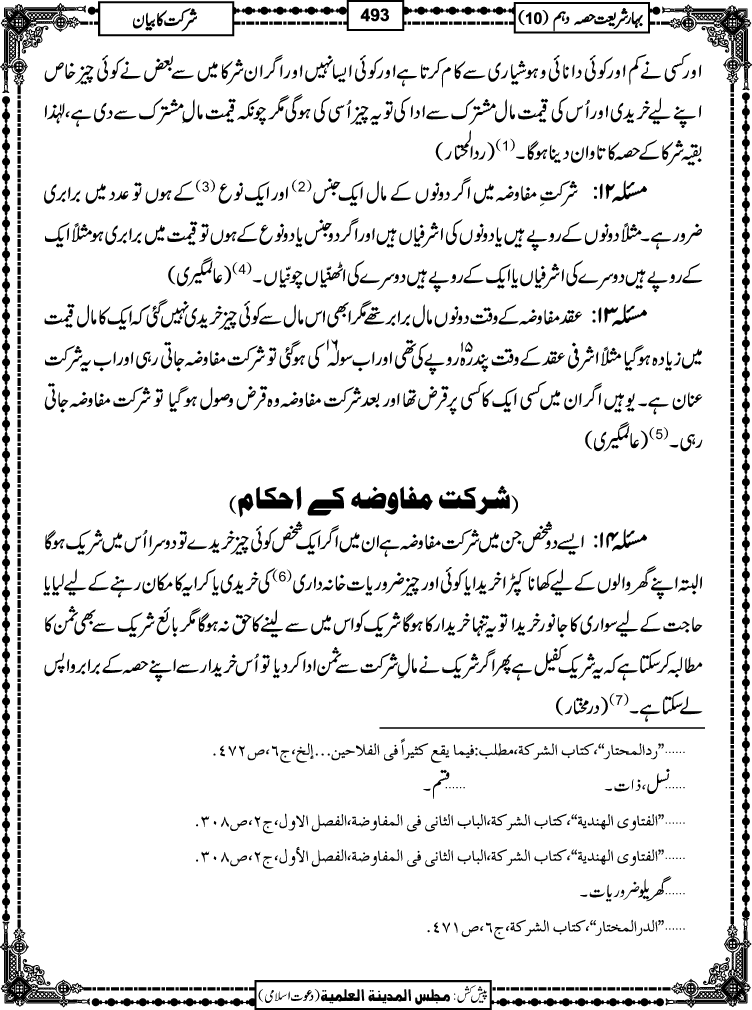 بہار شریعت حصہ دہم (10)
493
شرکت کا بیان
اور کسی نے کم اور کوئی دانائی و ہوشیاری سے کام کرتا ہے اور کوئی ایسا نہیں اور اگر ان شرکا میں سے بعض نے کوئی چیز خاص
اپنے لیے خریدی اور اُس کی قیمت مال مشترک سے ادا کی تو یہ چیز اُسی کی ہوگی مگر چونکہ قیمت مالِ مشترک سے دی ہے، لہٰذا
بقیہ شرکا کے حصہ کا تاوان دینا ہوگا۔(1) (ردالمحتار)
مسئلہ ۱۲: شرکتِ مفاوضہ میں اگر دونوں کے مال ایک جنس(2) اور ایک نوع(3) کے ہوں تو عدد میں برابری
ضرور ہے۔ مثلاً دونوں کے روپے ہیں یا دونوں کی اشرفیاں ہیں اور اگر دو جنس یا دو نوع کے ہوں تو قیمت میں برابری ہو مثلاً ایک
کے روپے ہیں دوسرے کی اشرفیاں یا ایک کے روپے ہیں دوسرے کی اٹھنّیاں چونّیاں۔(4) (عالمگیری)
مسئلہ ۱۳: عقد مفاوضہ کے وقت دونوں مال برابر تھے مگر ابھی اس مال سے کوئی چیز خریدی نہیں گئی کہ ایک کا مال قیمت
میں زیادہ ہوگیا مثلاً اشرفی عقد کے وقت پندرہ ۱۵ روپے کی تھی اور اب سولہ ۱۶ کی ہوگئی تو شرکت مفاوضہ جاتی رہی اور اب یہ شرکت
عنان ہے۔ یوہیں اگر ان میں کسی ایک کا کسی پر قرض تھا اور بعد شرکت مفاوضہ وہ قرض وصول ہوگیا تو شرکت مفاوضہ جاتی
رہی۔(5) (عالمگیری)
(شرکت مفاوضہ کے احکام)
مسئلہ ۱۴: ایسے دو شخص جن میں شرکت مفاوضہ ہے ان میں اگر ایک شخص کوئی چیز خریدے تو دوسرا اُس میں شریک ہوگا
البتہ اپنے گھر والوں کے لیے کھانا کپڑا خریدا یا کوئی اور چیز ضروریات خانہ داری(6) کی خریدی یا کرایہ کا مکان رہنے کے لیے لیا یا
حاجت کے لیے سواری کا جانور خریدا تو یہ تنہا خریدار کا ہوگا شریک کو اس میں سے لینے کا حق نہ ہوگا مگر بائع شریک سے بھی ثمن کا
مطالبہ کرسکتا ہے کہ یہ شریک کفیل ہے پھر اگر شریک نے مالِ شرکت سے ثمن ادا کردیا تو اُس خریدار سے اپنے حصہ کے برابر واپس
لے سکتا ہے۔(7) (درمختار)
......”ردالمحتار“،کتاب الشرکة،مطلب:فیما یقع کثیراً فی الفلاحین...إلخ،ج٦،ص٤٧٢.
......نسل،ذات۔ ......قسم۔
......”الفتاوی الهندیة“،کتاب الشرکة،الباب الثانی فی المفاوضة،الفصل الاول،ج٢،ص٣٠٨.
......”الفتاوی الهندیة“،کتاب الشرکة،الباب الثانی فی المفاوضة،الفصل الأول،ج٢،ص٣٠٨.
......گھریلو ضروریات۔
......”الدرالمختار“،کتاب الشرکة،ج٦،ص٤٧١.
پیش کش: مجلس المدینة العلمیة (دعوت اسلامی)